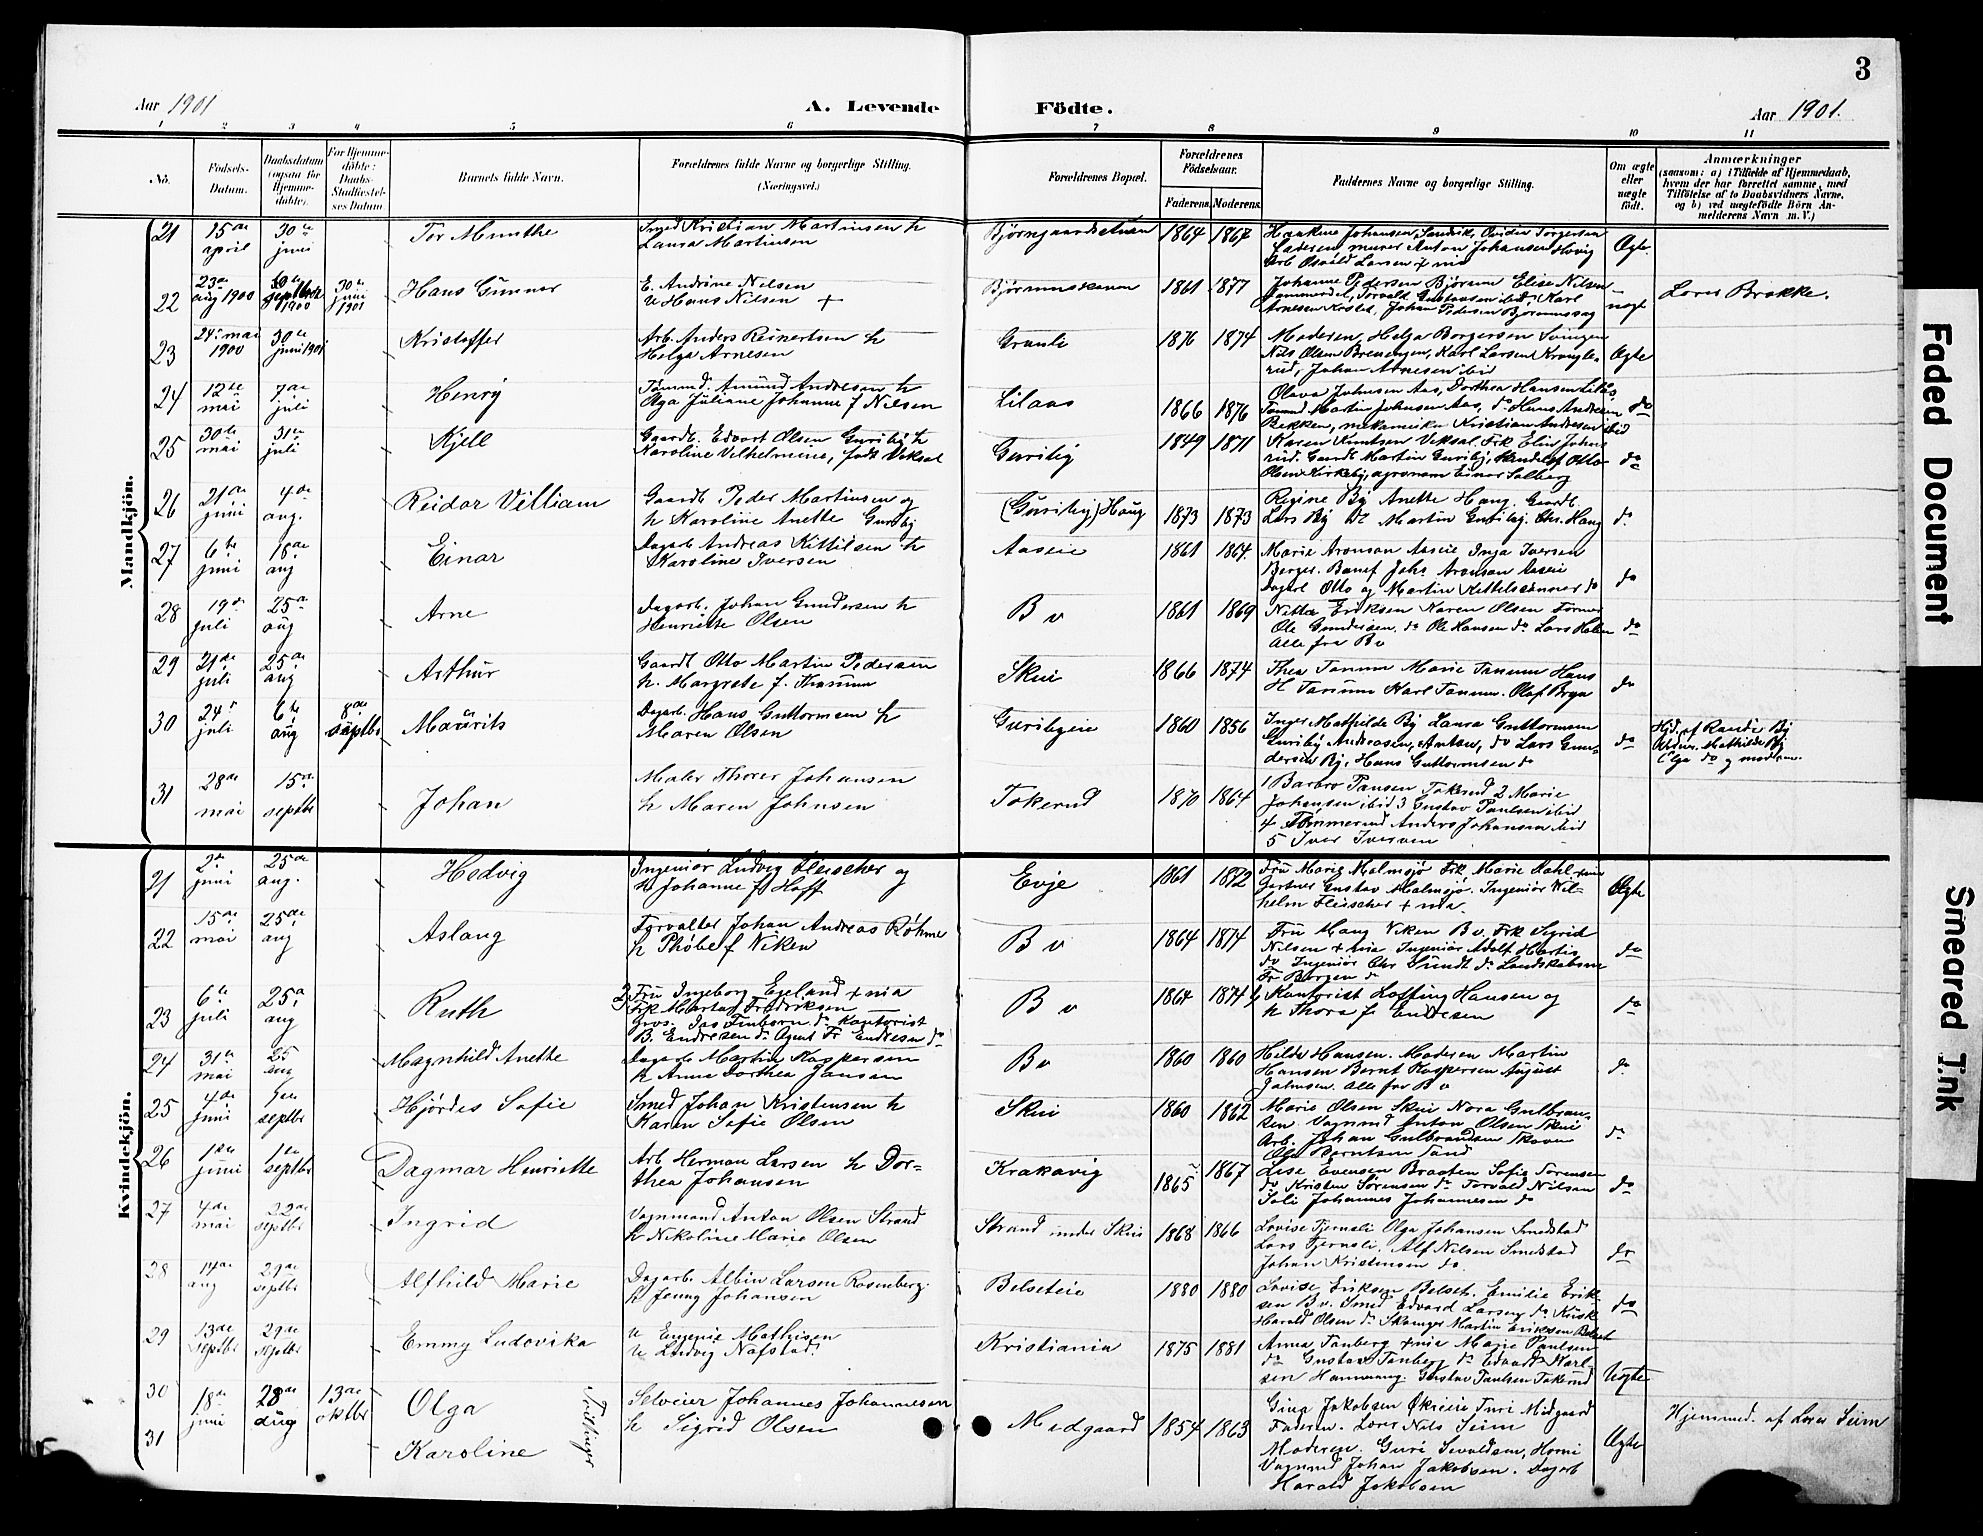 3
Aar 1901
A. Levende
Födte.
Aar 1901.
1 2 3 4 5 6 7 8 9 10 11
No.
Fødsels-Datum.
Daabsdatum (ogsaa for Hjemme-døbte).
For Hjemme-döbte: Daabs-Stadfæstel-ses Datum
Barnets fulde Navn.
Forældrenes fulde Navne og borgerlige Stilling. (Næringsvei.)
Forældrenes Bopæl.
Forældrenes Födselsaar.
Faderens. Moderens.
Faddernes Navne og borgerlige Stilling.
Om ægte eller uægte födt.
Anmærkninger
(saasom: a) i Tilfælde af Hjemmedaab, hvem der har forrettet samme, med Tilföielse af to Daabsvidners Navne, og b) ved uægtefödte Börn Anmelderens Navn m. V.)
Mandkjön.
21 15de april 30te juni Tor Munthe
Smed Kristian Martinsen h
Laura Martinsen
1864 1867
Haakine Johansen, Sandvik,
Faderen, murer Anton Johansen Høvig
Arb Osvald Larsen + nia
Ægte
22 23de aug 1900 30te septbr 1900 30te juni 1901 Hans Gunnar
E. Andrine Nilsen
U Hans Nilsen +
1861 1877
Johanne Pedersen Bjørum Elise Nilsen
uægt
Lærer Brække.
23 24de mai 1900 30te juni 1901 Kristoffer
Arb. Anders Reinertsen h
Helga Arnesen
Granli
1876 1874
Moderen, Helga Borgersen
Nils Olsen Brenengen, Karl Larsen Krongle-
rud, Johan Arnesen ibid
Ægte
24 12te mai 7de juli Henry
Tømmd. Amund Andresen h
Olga Juliane Johanne f Nilsen
Lilaas
1866 1876
Olava Johnsen Aas, Dorthea Hansen Lilås,
Tømmd Martin Johnsen Aas, do Hans Andresen
Bekken, mekaniker Kristian Andresen ibid
do
25 30te mai 31te juli Kjell
Gaardb. Edvart Olsen Guriby h
Karoline Vilhelmine, født Veksal
Guriby
1849 1871
Karen Knutsen Veksal. Frk Elin Johns
rud. Gaardb Martin Guriby, Otto
Olsen Kirkeby, agronom Einar Solberg
do
26 21de juni 4de aug. Reidar Villiam
Gaardb. Peder Martinsen og
h Karoline Anette Guriby
(Guriby) Haug
1873 1873
Regine By Anette Haug Gaardb.
Lars By do Martin Guriby. Chr. Haug
do
27 6te juni 18de aug Einar
Dagarb Andreas Kittilsen h
Karoline Iversen
Aaseie
1861 1864
Marie Aronsen Aaseie Inga Iversen
Berger. Banef Johs Aronsen Aaseie
Dagarb Otto og Martin Kittelsønner do
do
28 19de juli 25de aug Arne
Dagarb. Johan Gundersen h
Henriette Olsen
B v
1861 1869
Nitta Eriksen Karen Olsen Tømmer
Ole Gundersen. do Ole Hansen do Lars Holm
Alle fra B v
do
29 21de juli 25de aug Arthur
Gaardb Otto Martin Pedersen
h. Margrete f. Thanum
Skui
1866 1874
Thea Tanum Marie Tanum Hans
H Tanum Karl Tanum. Olaf Brya
do
30 24de juli 6te aug 8de septbr Mauritz
Dagarb. Hans Guttormsen h
Maren Olsen
Guribyeie
1860 1856
Inger Mathilde By Laura Guttormsen
Guriby Andreasen, Antsen, do Lars Gun-
dersen By, Hans Guttormsen do
do
Hjd. af Randi By
Vidner. Mathilde By
Olga do og moderen.
31 28de mai 15de septbr Johan
Maler Thorer Johansen
h Maren Johnsen
Tokerud
1870 1864
1 Barbro Paulsen Tokerud 2 Marie
Johansen ibid 3 Gustav Paulsen ibid
4 Tømmermd Anders Johansen ibid
5 Iver Iversen
Kvindekjön.
21 2de juni 25de aug. Hedvig
Ingeniør Ludvig Fleischer og
h Johanne f Hoff
Evje
1861 1872
Fru Marie Malmsjø Frk Marie Dahl + nia
Gartner Gustav Malmsjø. Ingeniør Vil-
helm Fleischer + nia.
Ægte
22 15de mai 25de aug Aslaug
Forvalter Johan Andreas Røhme
h Phøbe f Viken
B v
1864 1874
Fru Mang Viken B v. Frk Sigrid
Nilsen + nia Ingeniør Adolf Martis
do Ingeniør Chr Sundt do Landskabsm
Fr Borgen do
do
23 6te juli 25de aug Ruth
Fru Ingeborg Egeland + nia
Frk Martha Fredriksen
Gros. Jas Finborn. do Kontorist
B. Endresen do Agent Fr Endresen do
B v
1864 1874
Kontorist Lofting Hansen og
h Thora f. Endresen
do
24 31te mai 25 aug Magnhild Anette
Dagarb Martin Kaspersen
h Anna Dorthea Jansen
B v
1860 1860
Hilda Hansen. Moderen Martin
Hansen Bernt Kaspersen August
Johnsen. Alle fra B v
do
25 4de juni 1ste septbr Hjørdis Sofie
Smed Johan Kristensen h
Karen Sofie Olsen
Skui
1860 1862
Marie Olsen Skui Nora Gulbran-
sen. Vognmd Anton Olsen Skui
Arb. Johan Gulbrandsen Skoven
Ole Berntsen Tand
do
26 1ste juni 1ste septbr Dagmar Henriette
Arb Herman Larsen h Dor-
thea Johansen
Krakavig
1865 1867
Lise Evensen Braaten Sofie Sørensen
do Kristen Sørensen do Torvald Nilsen
Soli Johannes Johannesen do
do
27 4de mai 22de septbr Ingrid
Vognmand Anton Olsen Strand
h Nikoline Marie Olsen
Strand under Skui
1868 1866
Lovise Tjernsli Olga Johansen Smedstad
Lars Tjernsli. Alf Nilsen Smedstad
Johan Kristensen do
do
28 14de aug 29de septbr Alfhild Marie
Dagarb. Albin Larsen Rosenberg.
h Jenny Johansen
Belseteie
1880 1880
Lovise Eriksen Belset. Emilie Erik-
sen B v. Smed Edvard Larsen do Kusk
Harald Olsen do Skomager Martin Eriksen Belset
do
29 13de septbr 29de septbr Emmy Ludovika
U Eugenie Mathisen
U Ludvig Nafstad.
Kristiania
1875 1881
Anna Tanberg + nia Marie Paulsen
do Gustav Tanberg do Edvard Karl-
sen Hammang. Gustav Paulsen Tokerud
Uægte
30 18de juni 28de aug 13de oktbr Olga
31 Karoline
Tvillinger
Selveier Johannes Johannesen
h Sigrid Olsen
Medgaard
1854 1863
Gina Jakobsen Økrieie Turi Midgaard
Faderen. Lærer Nils Seim
Moderen. Guri Sevaldsen, Horni
Vognmd Johan Jakobsen. Dagarb
Harald Jakobsen
Ægte
Hjemmed. af Lærer Seim
Faded Document
Smeared Ink